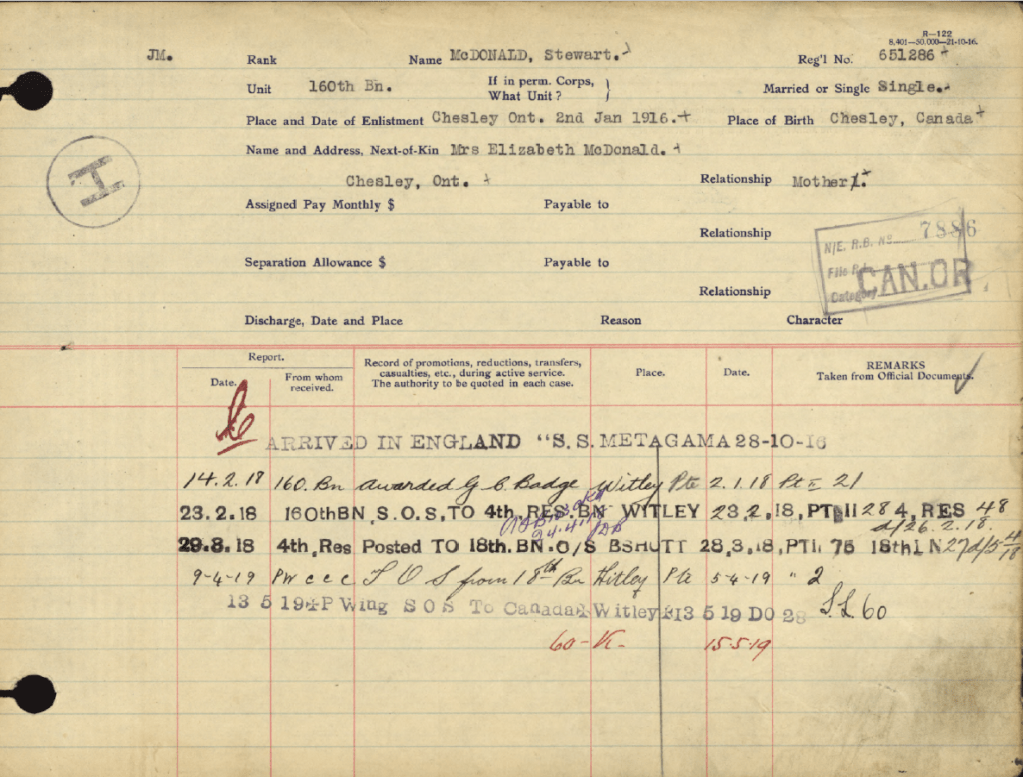 R—122
8,401—50,000—21-10-16.
JM. Rank Name McDONALD, Stewart. Reg'l No. 651286
Unit 160th Bn. If in perm. Corps, What Unit? } Married or Single Single.
Place and Date of Enlistment Chesley Ont. 2nd Jan 1916. Place of Birth Chesley, Canada
Name and Address, Next-of-Kin Mrs Elizabeth McDonald.
Chesley, Ont. Relationship Mother
H
Assigned Pay Monthly $ Payable to
Relationship
N/E. R.B. No. 7886
File R.
Category CAN.OR
Separation Allowance $ Payable to
Relationship
Discharge, Date and Place Reason Character
Report. Record of promotions, reductions, transfers, casualties, etc., during active service. The authority to be quoted in each case. Place. Date. REMARKS Taken from Official Documents.
Date. From whom received.
ARRIVED IN ENGLAND "S.S. METAGAMA 28-10-16
14.2.18 160.Bn awarded G C Badge Witley Pte 2.1.18 Pt II 21
23.2.18 160thBN, S.O.S, TO 4th, RES. BN WITLEY 23 2, 18, PT II 28 4, RES 48
d/26.2.18.
29.3.18 4th, Res Posted TO 18th. BN. O/S BSHUTT 28,3,18, PTII 75 18th
9-4-19 PW c c c T O S from 18th Bn Witley Pte 5-4-19 " 2
13 5 19 P Wing S O S To Canada Witley 13 5 19 DO 28 S.L. 60
60-K- 15-5-19